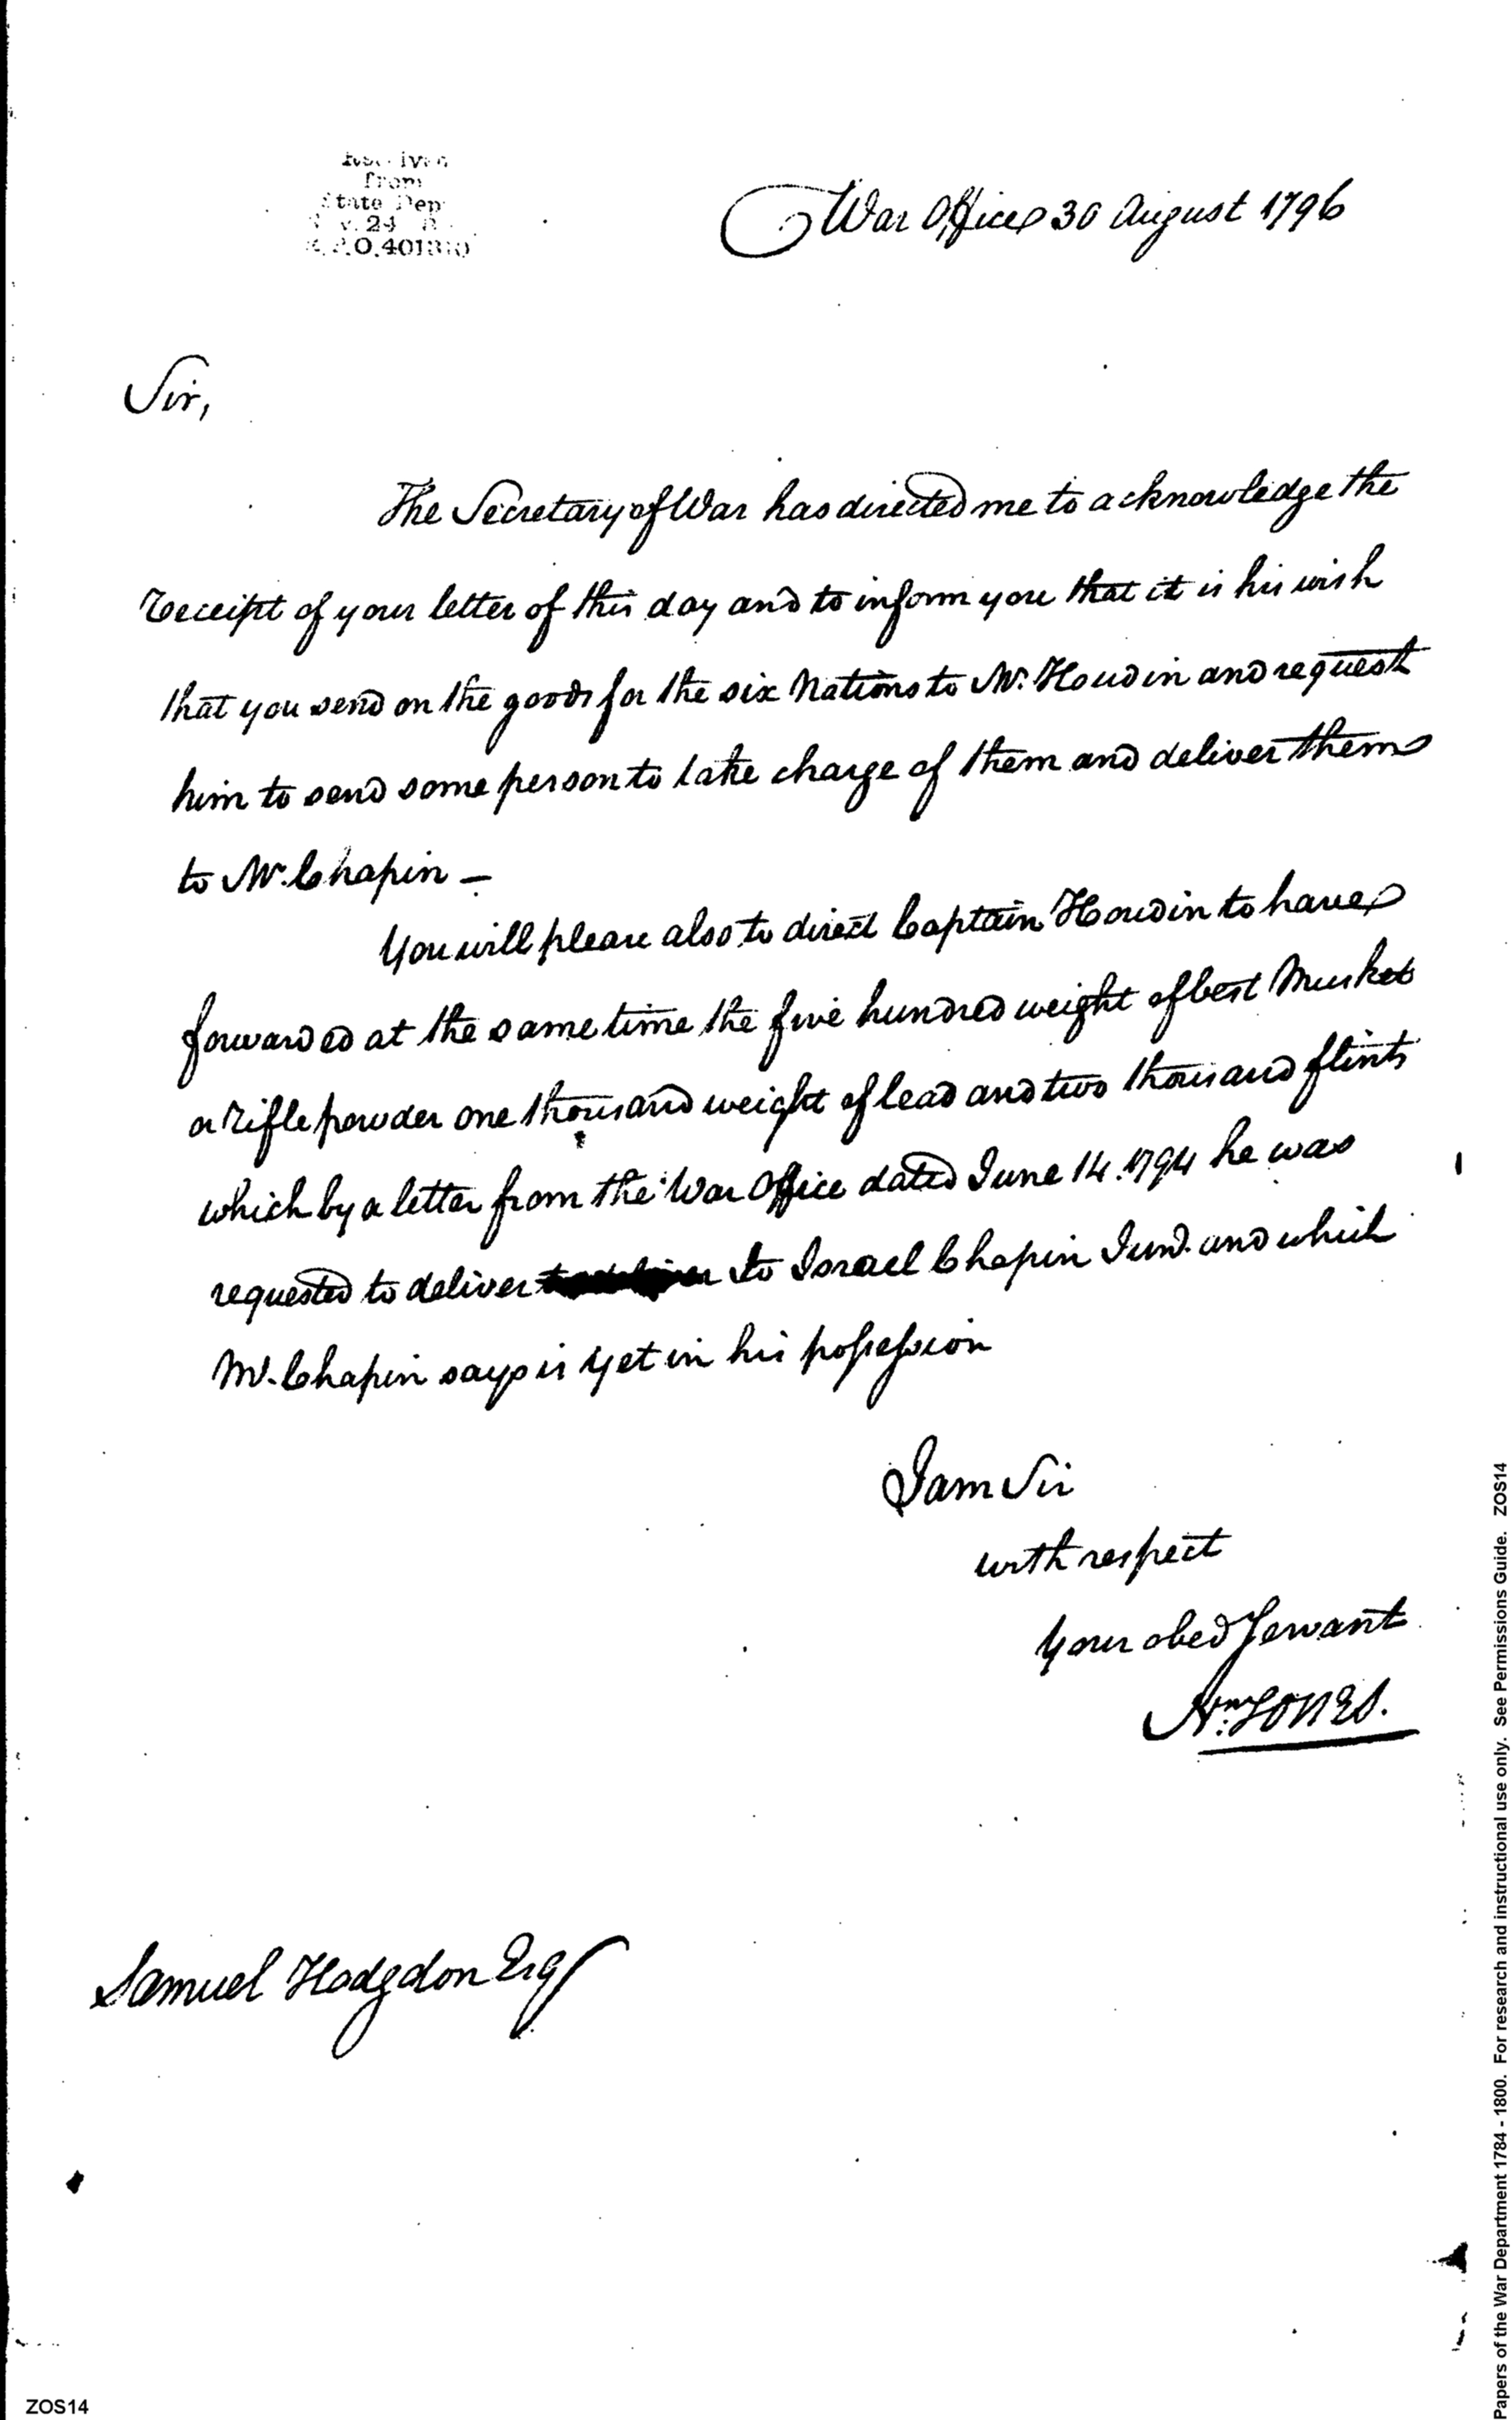 from
State Dep
War Office 30 August 1796
Sir,
The Secretary of War has directed me to acknowledge the
receipt of your letter of this day and to inform you that it is his wish
that you send on the goods for the six Nations to Mr. Houdin and request
him to send some person to take charge of them and deliver them
to Mr. Chapin —
You will please also to direct Captain Houdin to have
forwarded at the same time the five hundred weight of best Musket
or rifle powder one thousand weight of lead and two thousand flints
which by a letter from the War Office dated June 14. 1794 he was
requested to deliver to Israel Chapin Junr. and which
Mr. Chapin says is yet in his possession
I am Sir
with respect
Your obed Servant
Jones.
Samuel Hodgdon Esq
ZOS14
Papers of the War Department 1784 - 1800. For research and instructional use only. See Permissions Guide. ZOS14